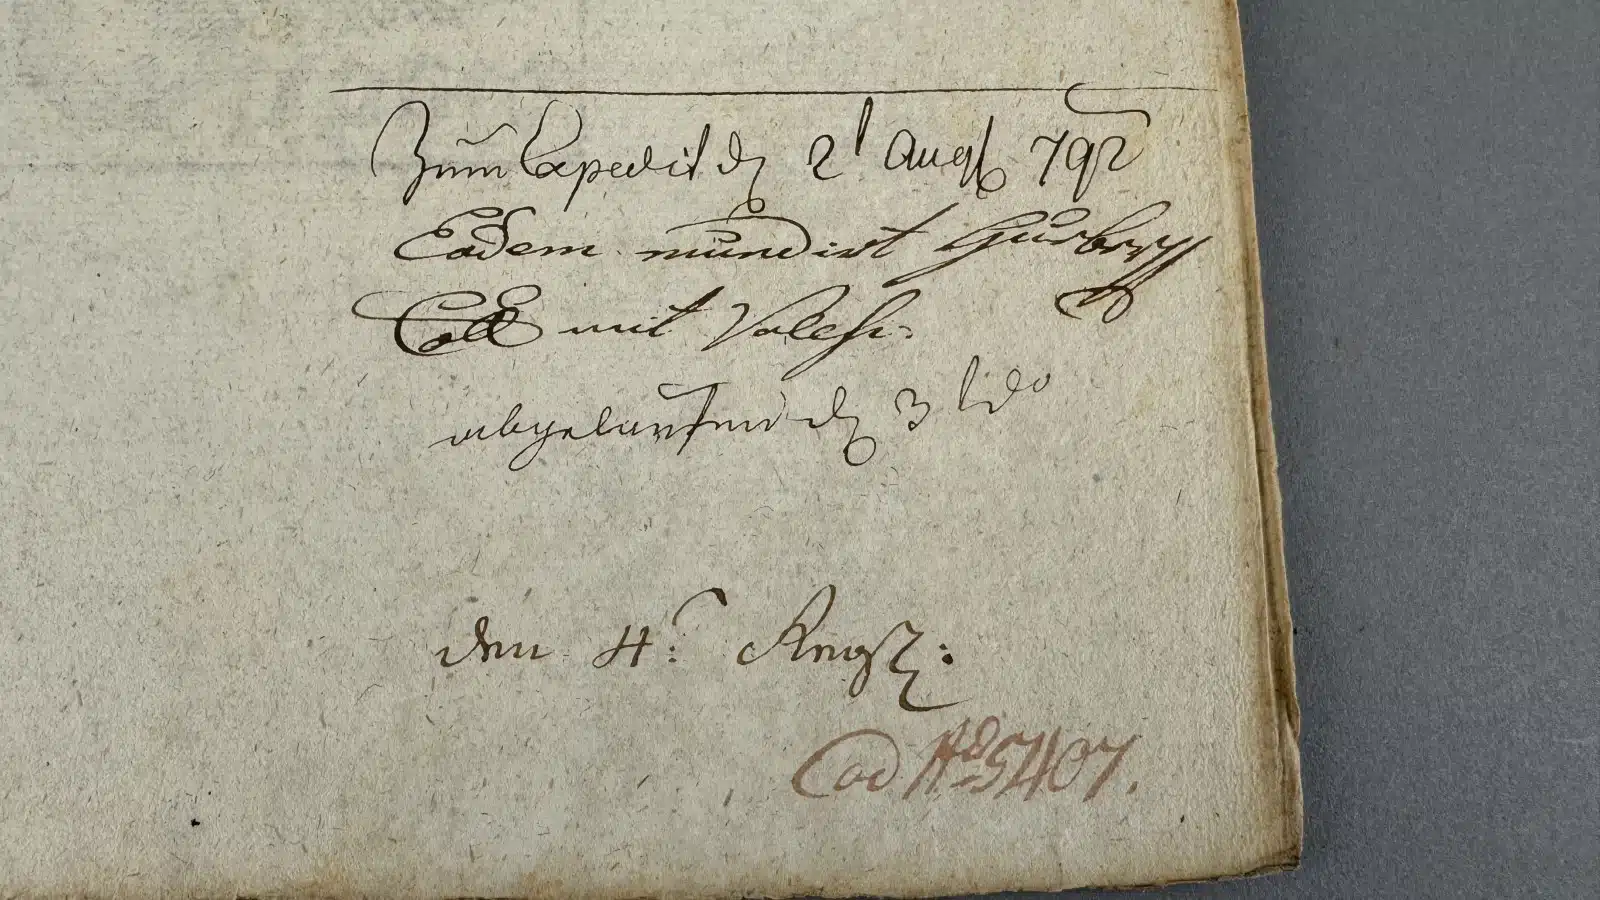 Zum Expedit den 2t Augst 792
Eodem mundirt
Coll mit
abgelaufen den 3 do
den 4:
Cod No 5407.